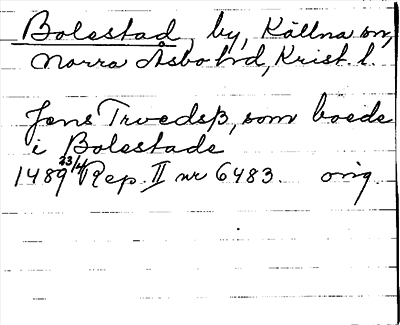 Bolestad, by, Källna sn,
Norra Åsbo hd, Krist. l.
Jens Trvedsß, som boede
i Bolestade
1489 23/4 Rep. II nr 6483. orig.